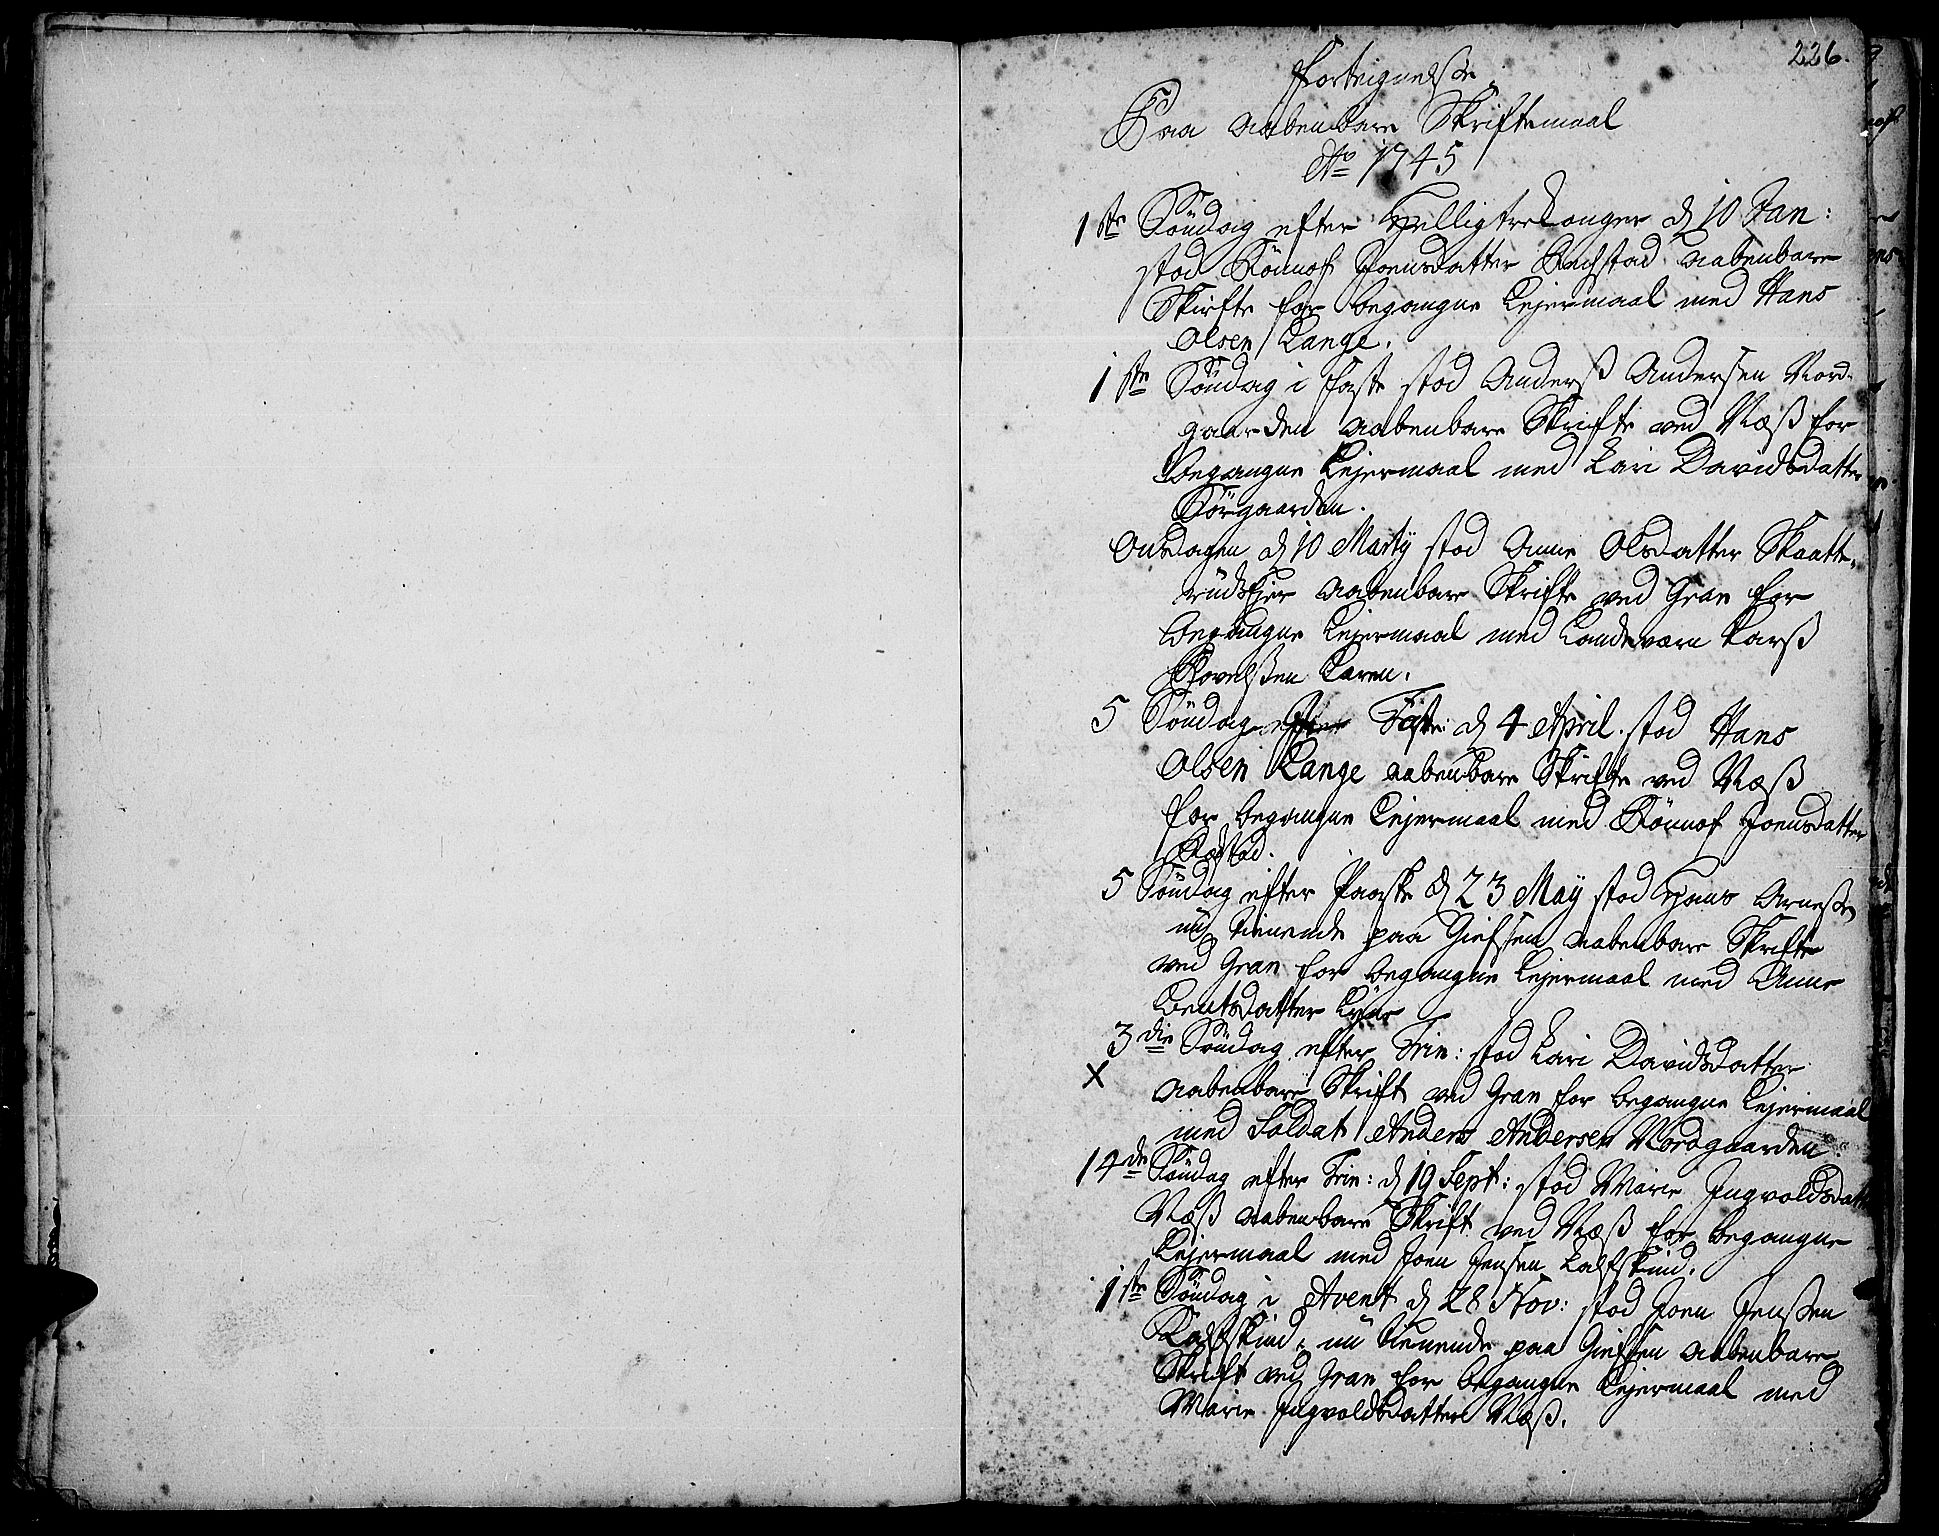 226.
Fortegnelse
Paa aabenbare Skriftemaal
Ao 1745
1ste Söndag efter Helligtrekonger d 10 Jan:
stod Rönnof Joensdatter aabenbare
Skrifte for begangne Lejermaal med Hans
Olsen Lange.
1ste Söndag i Faste stod Anderß Andersen Nord-
gaarden aabenbare Skrifte ved Næß for
begangne Lejermaal med Kari Davidsdatter
Sörgaarden.
Onsdagen d 10 Martij stod Anne Olsdatter Skaatte-
rudsejer aabenbare Skrifte ved Gran for
begangne Lejermaal med Landeværn Larß
5 Söndag Faste d 4 April. stod Hans
Olsen Lange aabenbare Skrifte ved Næß
for begangne Lejermaal med Rönnof Joensdatter
5 Söndag efter Paaske d 23 Maij stod Hans Arneßen
nu tienende paa Giefsen aabenbare Skrifte
ved Gran for begangne Lejermaal med Anne
Bentsdatter
3die Söndag efter Trin: stod Kari Davidsdatter
X aabenbare Skrift ved Gran for begangne Lejermaal
med Soldat Anders Andersen Nordgaarden.
14de Söndag efter Trin: d 19 Sept: stod Marie Ingvoldsdatt
Næß aabenbare Skrift ved Næß for begangne
Lejermaal med Joen Jensen Kalfskind.
1ste Söndag i Avent d 28 Nov: stod Joen Jenßen
Kalfskind, nu tienende paa Giefsen aabenbare
Skrift ved Gran for begangne Lejermaal med
Marie Ingvoldsdatter Næß.